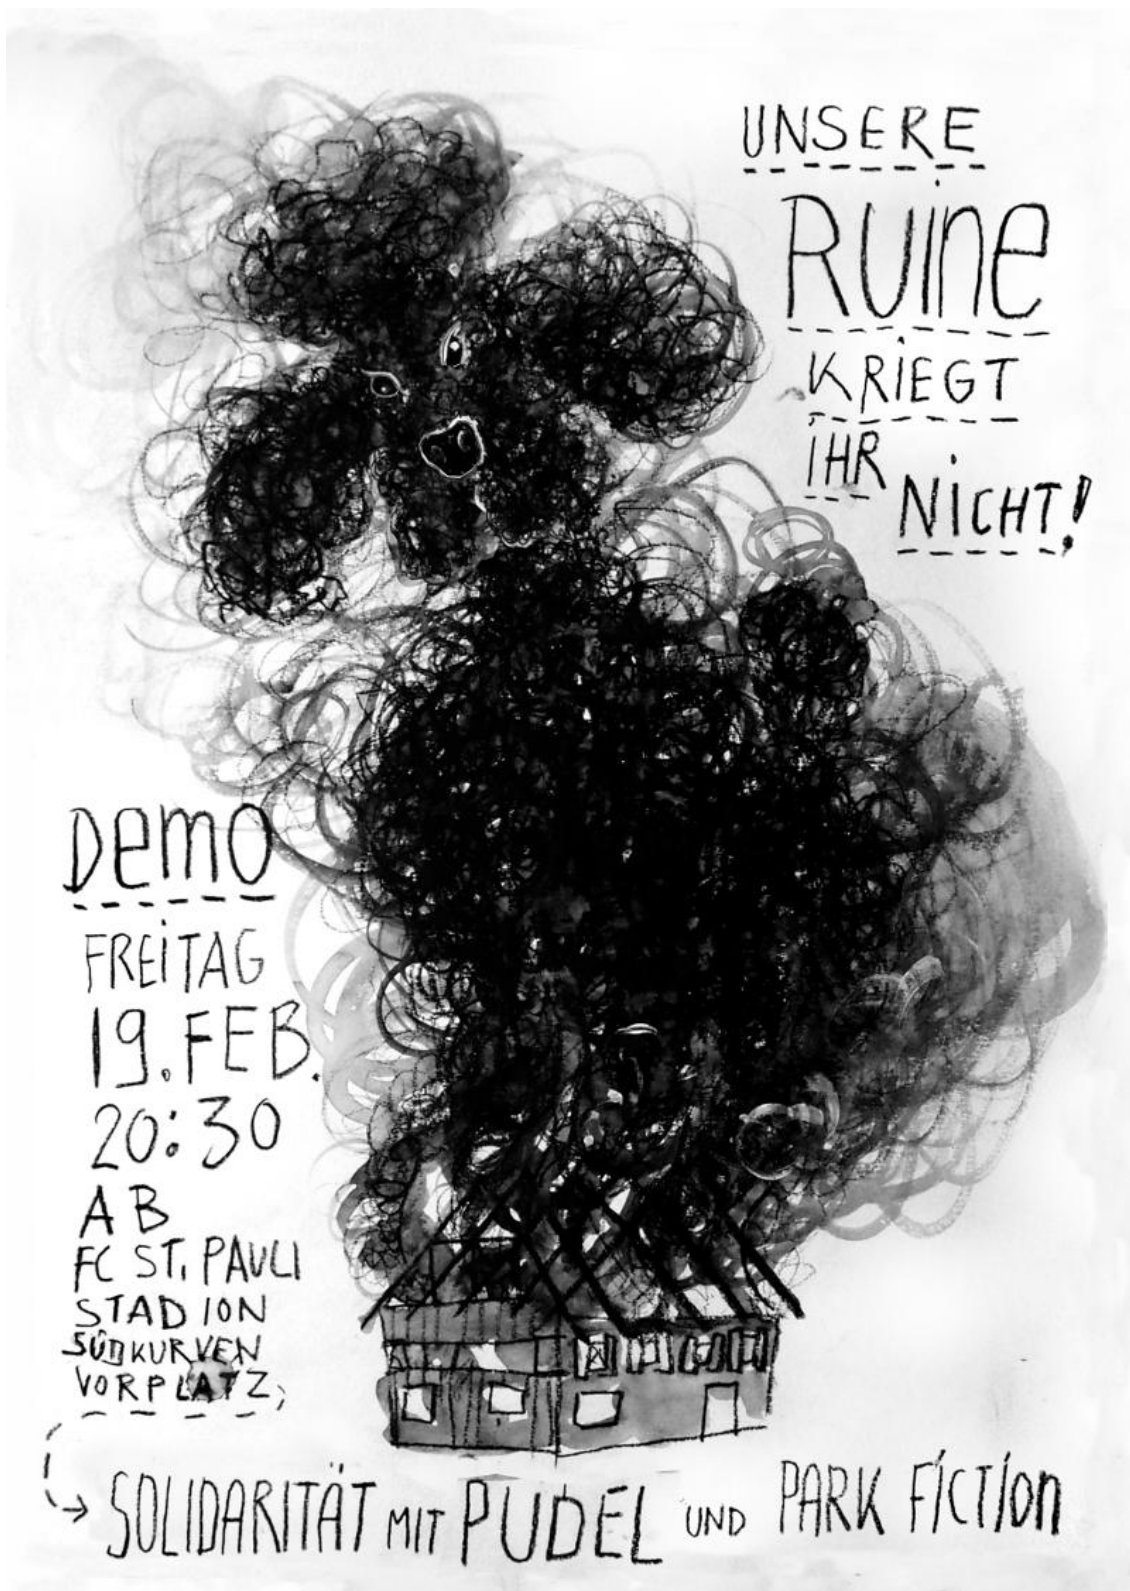 UNSERE
RUINE
KRIEGT
IHR
NICHT!
DEMO
FREITAG
19. FEB.
20:30
AB
FC ST. PAULI
STADION
SÜDKURVEN
VORPLATZ,
SOLIDARITÄT MIT PUDEL UND PARK FICTION